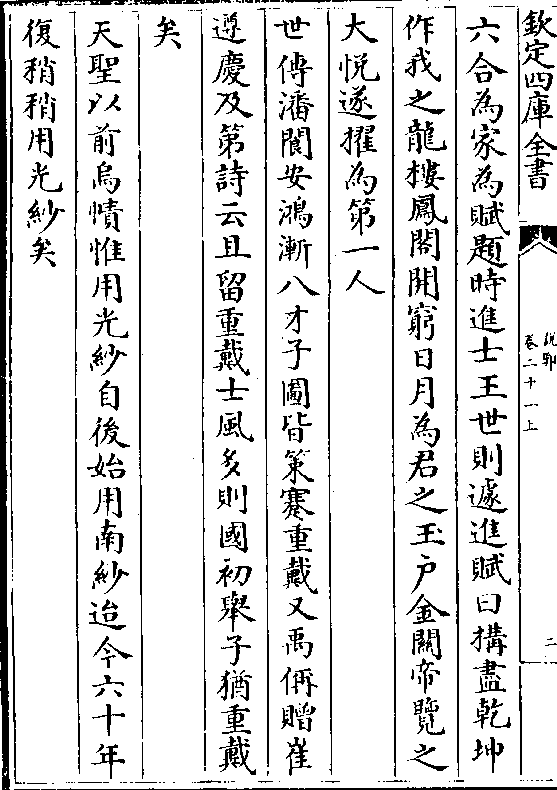 欽定四庫全書
說郛
卷二十一上
二
六合為家為賦題時進士王世則遽進賦曰搆盡乾坤
作我之龍樓鳳閣開窮日月為君之玉戶金關帝覽之
大悦遂擢為第一人
世傳潘閬安鴻漸八才子圖皆策蹇重戴又禹偁贈崔
遵慶及第詩云且留重戴士風多則國初舉子猶重戴
矣
天聖以前烏幘惟用光紗自後始用南紗迨今六十年
復稍稍用光紗矣